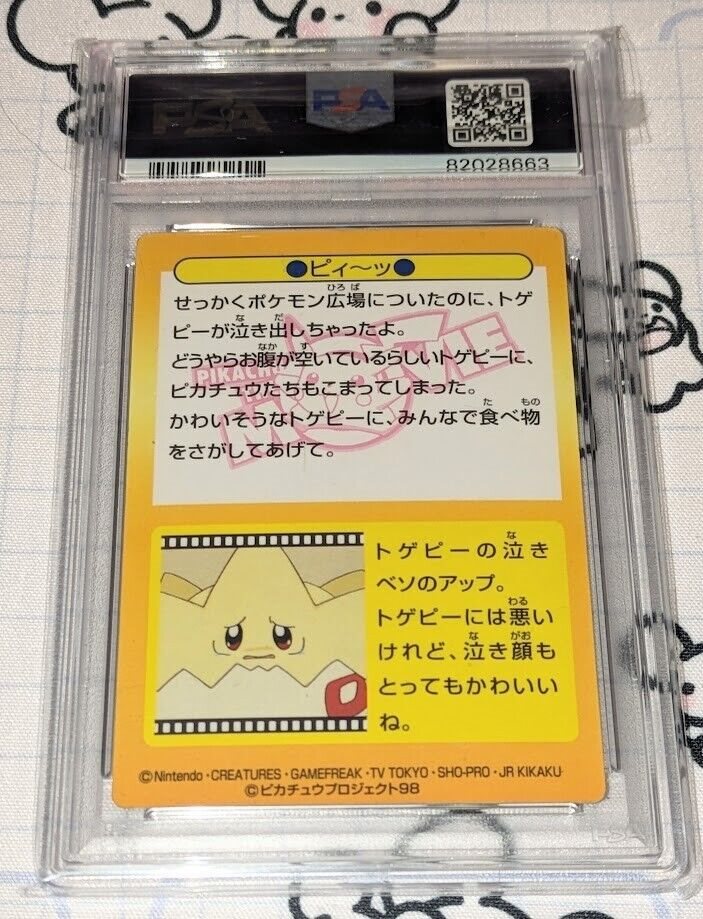 PSA
PSA
82028663
●ピィ〜ッ●
せっかくポケモン広場についたのに、トゲ
ひろば
ピーが泣き出しちゃったよ。
な だ
どうやらお腹が空いているらしいトゲピーに、
なか す
ピカチュウたちもこまってしまった。
かわいそうなトゲピーに、みんなで食べ物
た もの
をさがしてあげて。
PIKACHU
MOVIE
トゲピーの泣き
な
ベソのアップ。
トゲピーには悪い
わる
けれど、泣き顔も
な がお
とってもかわいい
ね。
©Nintendo・CREATURES・GAMEFREAK・TV TOKYO・SHO-PRO・JR KIKAKU
©ピカチュウプロジェクト98